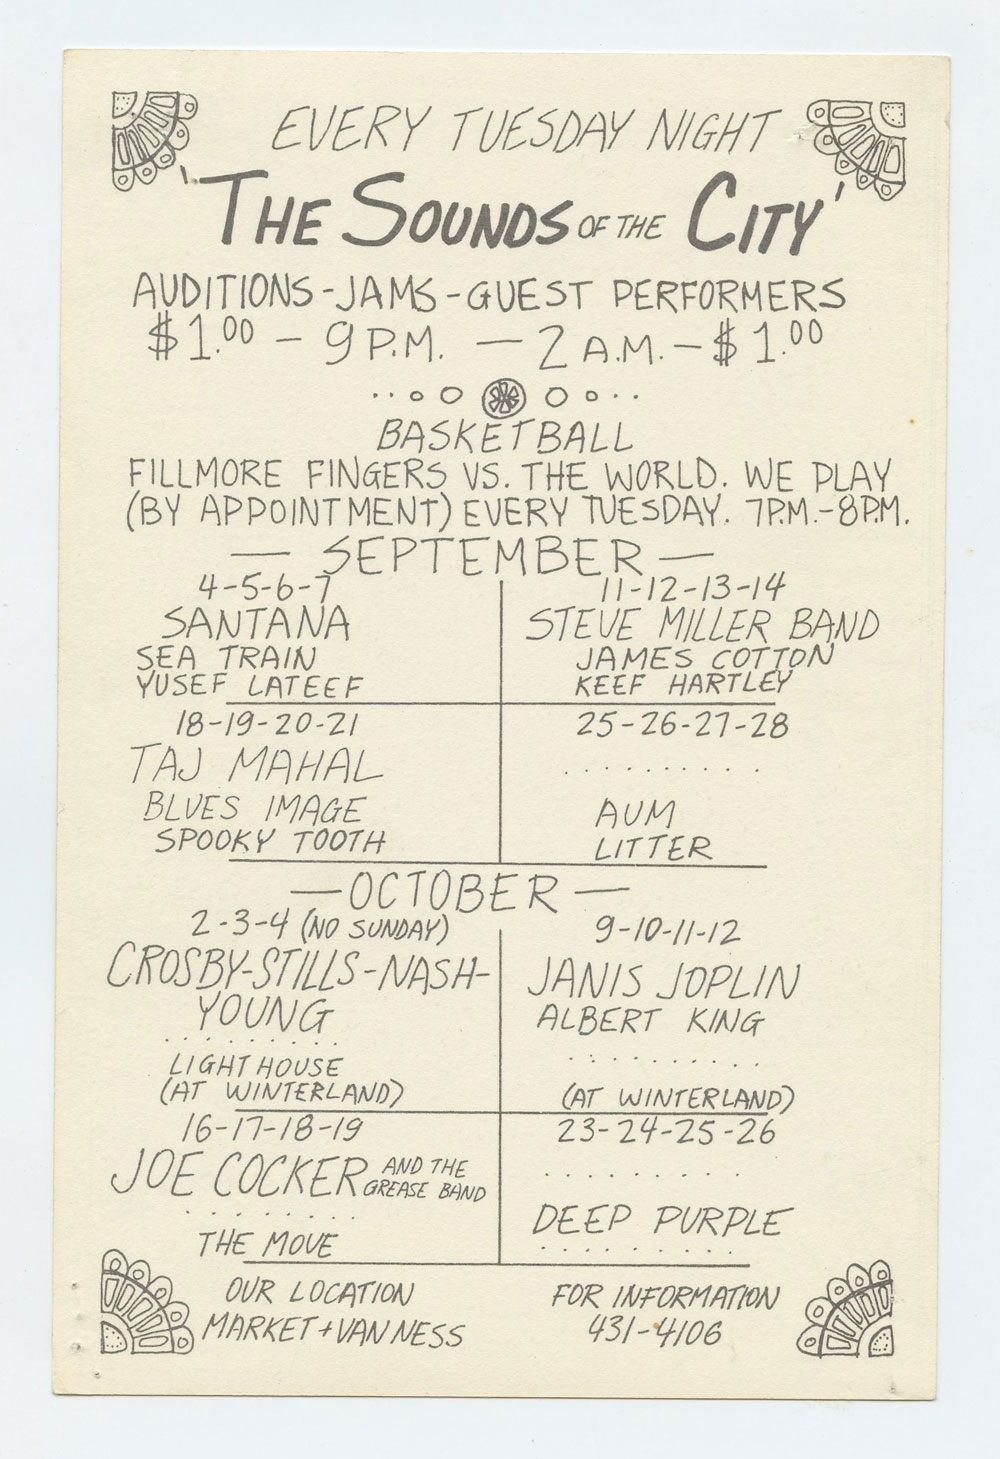 EVERY TUESDAY NIGHT
'THE SOUNDS OF THE CITY'
AUDITIONS - JAMS - GUEST PERFORMERS
$1.00 - 9 P.M. - 2 A.M. - $1.00
BASKETBALL
FILLMORE FINGERS VS. THE WORLD. WE PLAY
(BY APPOINTMENT) EVERY TUESDAY. 7P.M.-8P.M.
— SEPTEMBER —
4-5-6-7
SANTANA
SEA TRAIN
YUSEF LATEEF
11-12-13-14
STEVE MILLER BAND
JAMES COTTON
KEEF HARTLEY
18-19-20-21
TAJ MAHAL
BLUES IMAGE
SPOOKY TOOTH
25-26-27-28
. . . . . . . . .
AUM
LITTER
— OCTOBER —
2-3-4 (NO SUNDAY)
CROSBY-STILLS-NASH-
YOUNG
. . . . . . . . .
LIGHT HOUSE
(AT WINTERLAND)
9-10-11-12
JANIS JOPLIN
ALBERT KING
. . . . . . . . .
(AT WINTERLAND)
16-17-18-19
JOE COCKER AND THE
GREASE BAND
. . . . . . . . .
THE MOVE
23-24-25-26
. . . . . . . . .
DEEP PURPLE
. . . . . . . . .
OUR LOCATION
MARKET + VAN NESS
FOR INFORMATION
431-4106